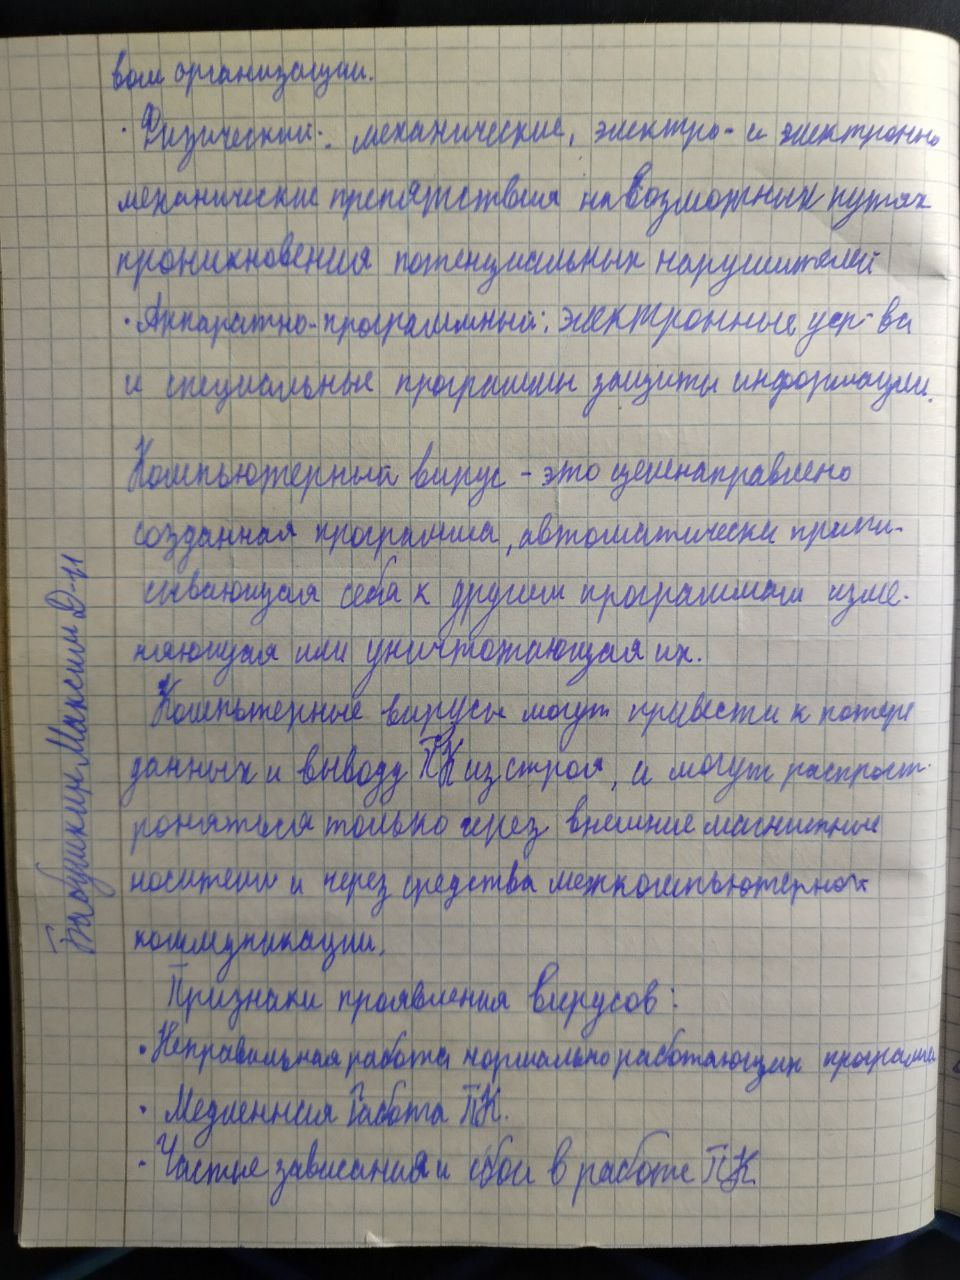 вом организации.
· Физический: механические, электро- и электронно
механические препятствия на возможных путях
проникновения потенциальных нарушителей
· Аппаратно-программный: электронные уср-ва
и специальные программы защиты информации.
Компьютерный вирус - это целенаправлено
созданная программа, автоматически припи-
сывающая себя к другим программам изме-
няющая или уничтожающая их.
Компьтерные вирусы могут привести к потере
данных и выводу ПК из строя, и могут распрост-
роняться только через внешние магнитные
носители и через средства межкомпьютерной
коммуникации.
Признаки проявления вирусов:
· Неправильная работа нормально работающих программ
· Медленная Работа ПК.
· Частые зависания и сбои в работе ПК
Бабушкин Максим Д-11